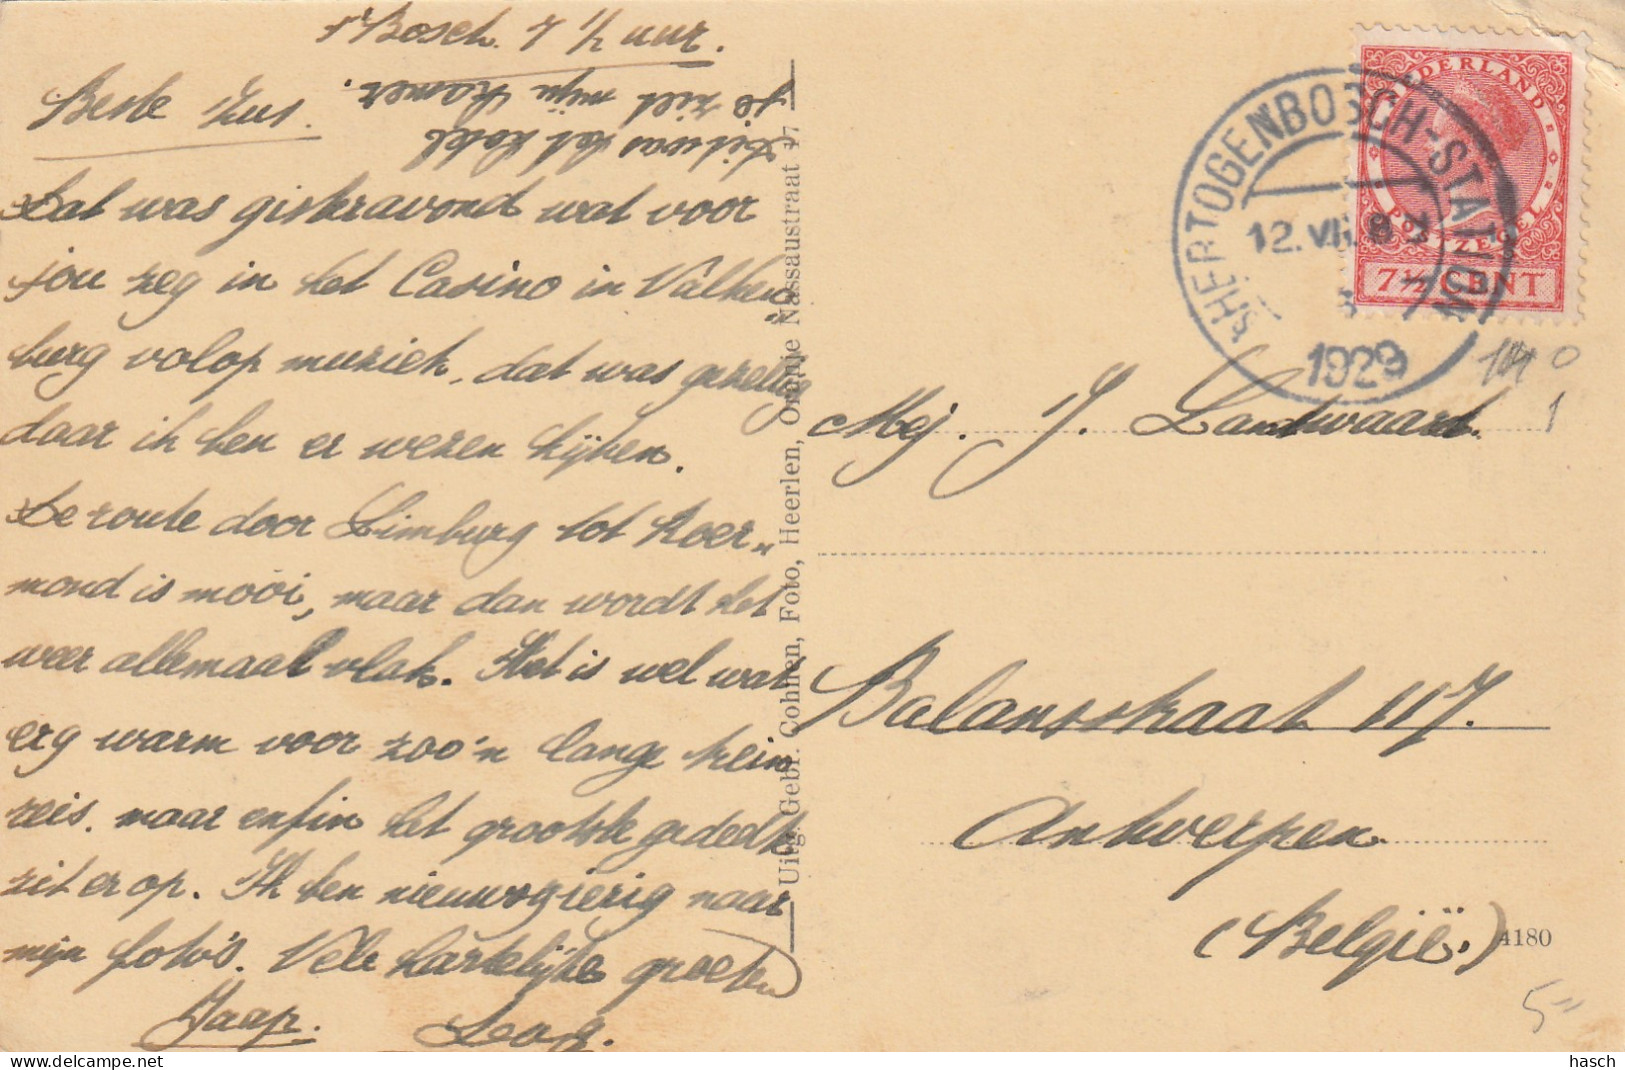 's Bosch. 7 1/2 uur.
Beste Zus.
Dit was het hotel
je ziet mijn kamer.
Dat was gisteravond wat voor
jou zeg in het Casino in Valken„
burg volop muziek, dat was gezellig
daar ik ben er wezen kijken.
De route door Limburg tot Roer„
mond is mooi, maar dan wordt het
weer allemaal vlak. Het is wel wat
erg warm voor zoo'n lange trein
reis. maar enfin het grootste gedeelte
zit er op. Ik ben nieuwsgierig naar
mijn foto's. Vele hartelijke groeten
Jaap.
Uitg. Gebr. Cohnen, Foto, Heerlen, Oranje Nassaustraat 17
NEDERLAND
POSTZEGEL
7½ CENT
'S HERTOGENBOSCH-STATION
12.VII. 8
1929
Mej. J. Landwaart.
Balansstraat 117.
Antwerpen.
(België.)
4180
1
5=
hasch